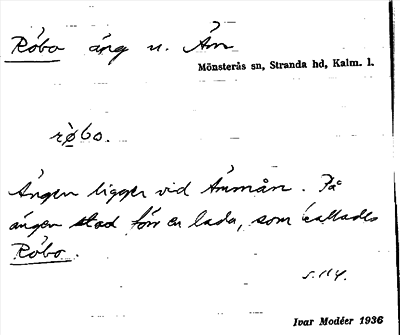 Röbo äng n. Åm
Mönsterås sn, Stranda hd, Kalm. l.
rø̀bo.
Ängen ligger vid Åmmån. På
ängen stod förr en lada, som kallades
Röbo.
s. 114.
Ivar Modéer 1936